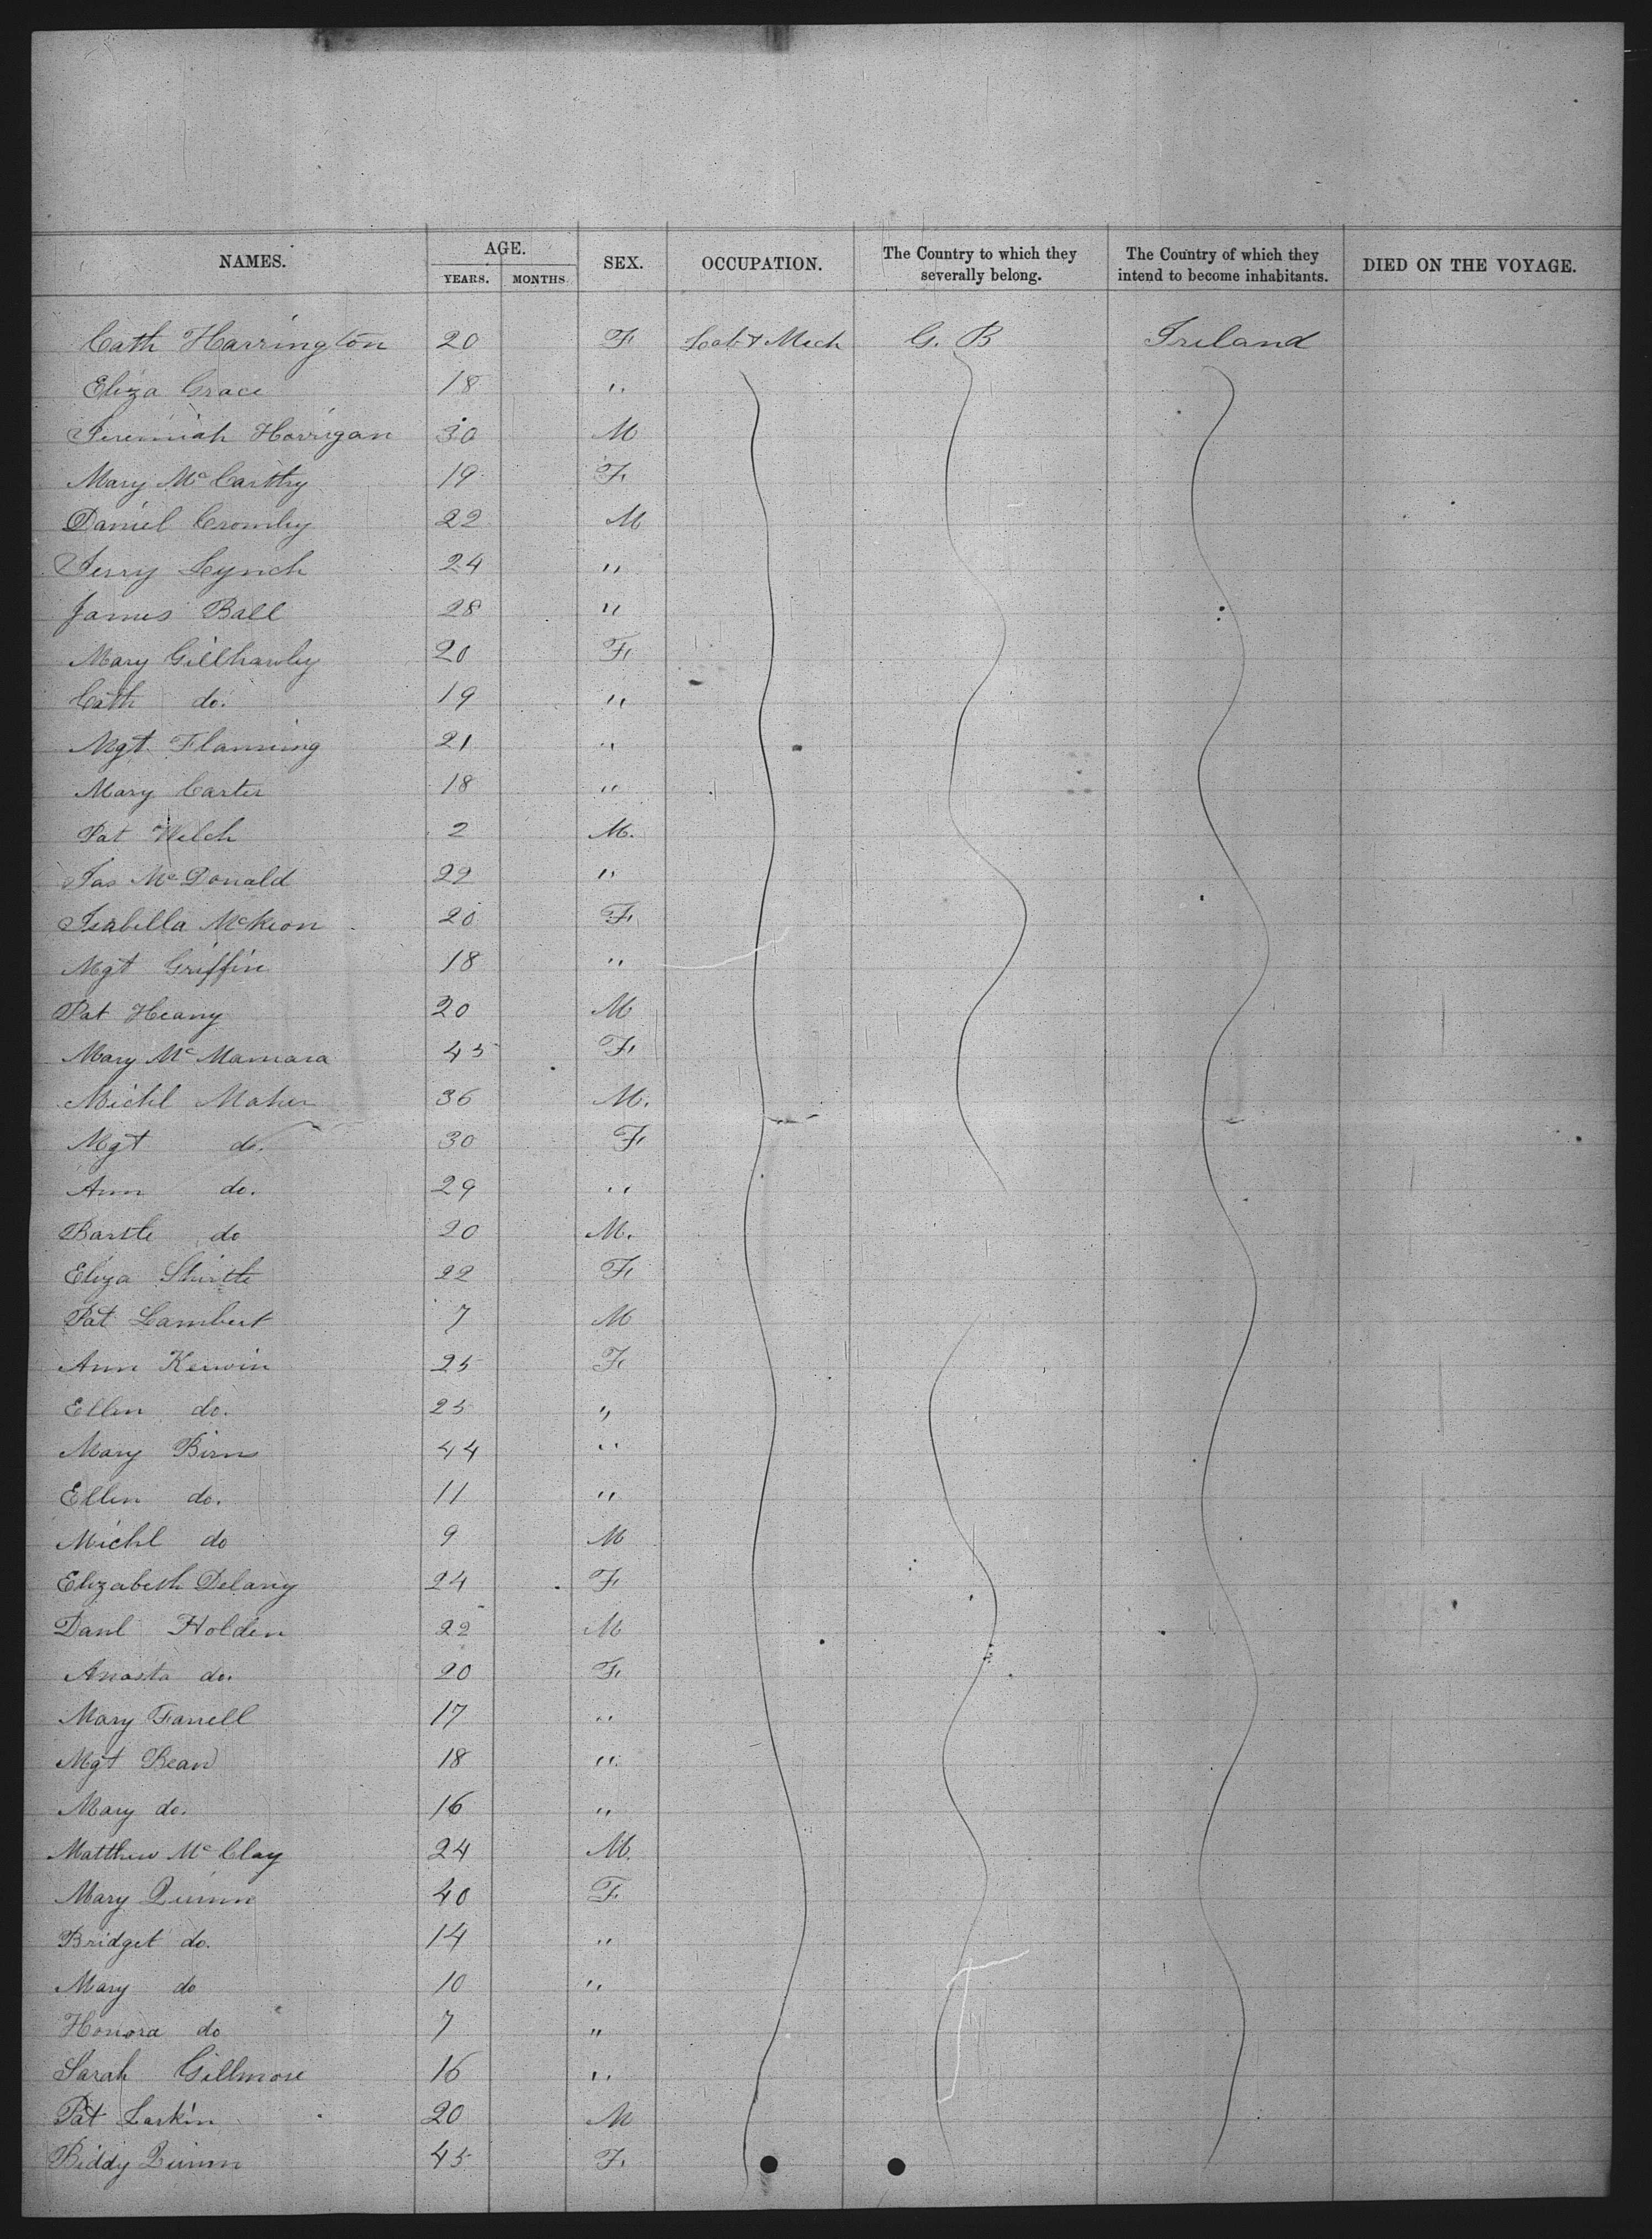 NAMES. AGE. YEARS. MONTHS. SEX. OCCUPATION. The Country to which they severally belong. The Country of which they intend to become inhabitants. DIED ON THE VOYAGE.
Cath Harrington 20 F Lab & Mech G. B Ireland
Eliza Grace 18 "
Jeremiah Harrigan 30 M
Mary McCarthy 19 F
Daniel Cromley 22 M
Jerry Lynch 24 "
James Ball 28 "
Mary Gillhawley 20 F
Cath do. 19 "
Mgt Flanning 21 "
Mary Carter 18 "
Pat Welch 2 M.
Jas McDonald 22 "
Isabella McKeon 20 F
Mgt Griffin 18 "
Pat Heany 20 M
Mary McMamara 45 F
Michl Maher 36 M.
Mgt do. 30 F
Ann do. 29 "
Bartle do 20 M.
Eliza 22 F
Pat Lambert 7 M
Ann Kerwin 25 F
Ellen do. 25 "
Mary Birns 44 "
Ellen do. 11 "
Michl do 9 M
Elizabeth Delany 24 F
Danl Holden 22 M
Anasta do. 20 F
Mary Farrell 17 "
Mgt Bean 18 "
Mary do. 16 "
Matthew McClay 24 M.
Mary Quinn 40 F
Bridget do. 14 "
Mary do 10 "
Honora do 7 "
Sarah Gillmore 16 "
Pat Larkin 20 M
Biddy Quinn 45 F.